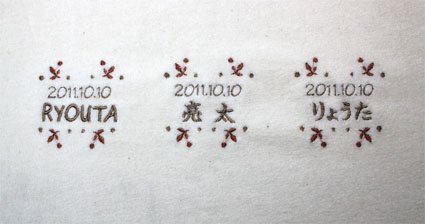 2011.10.10
RYOUTA
2011.10.10
亮太
2011.10.10
りょうた